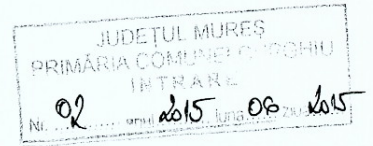 JUDEȚUL MUREȘ
PRIMĂRIA COMUNEI GURGHIU
INTRARE
Nr. 02 anul 2015 luna 06 ziua